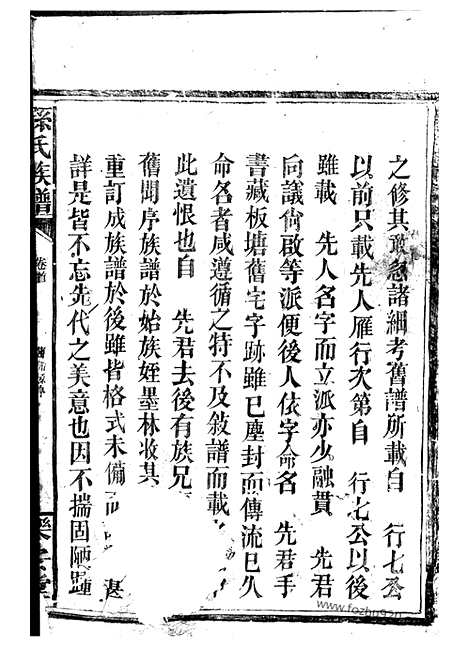 之修其敢怠諸細考舊譜所載自 行七公
以前只載先人雁行次第自 行七公以後
雖載 先人名字而立派亦少融貫 先君
向議尙啟等派便後人依字命名 先君手
書藏板塘舊宅字跡雖已塵封而傳流已久
命名者咸遵循之特不及敘譜而載
此遺恨也自 先君去後有族兄
舊聞序族譜於始族姪墨林收其
重訂成族譜於後雖皆格式未備
詳是皆不忘先代之美意也因不揣固陋踵
孫氏族譜
卷首
樂安堂
www.fozhu920.com